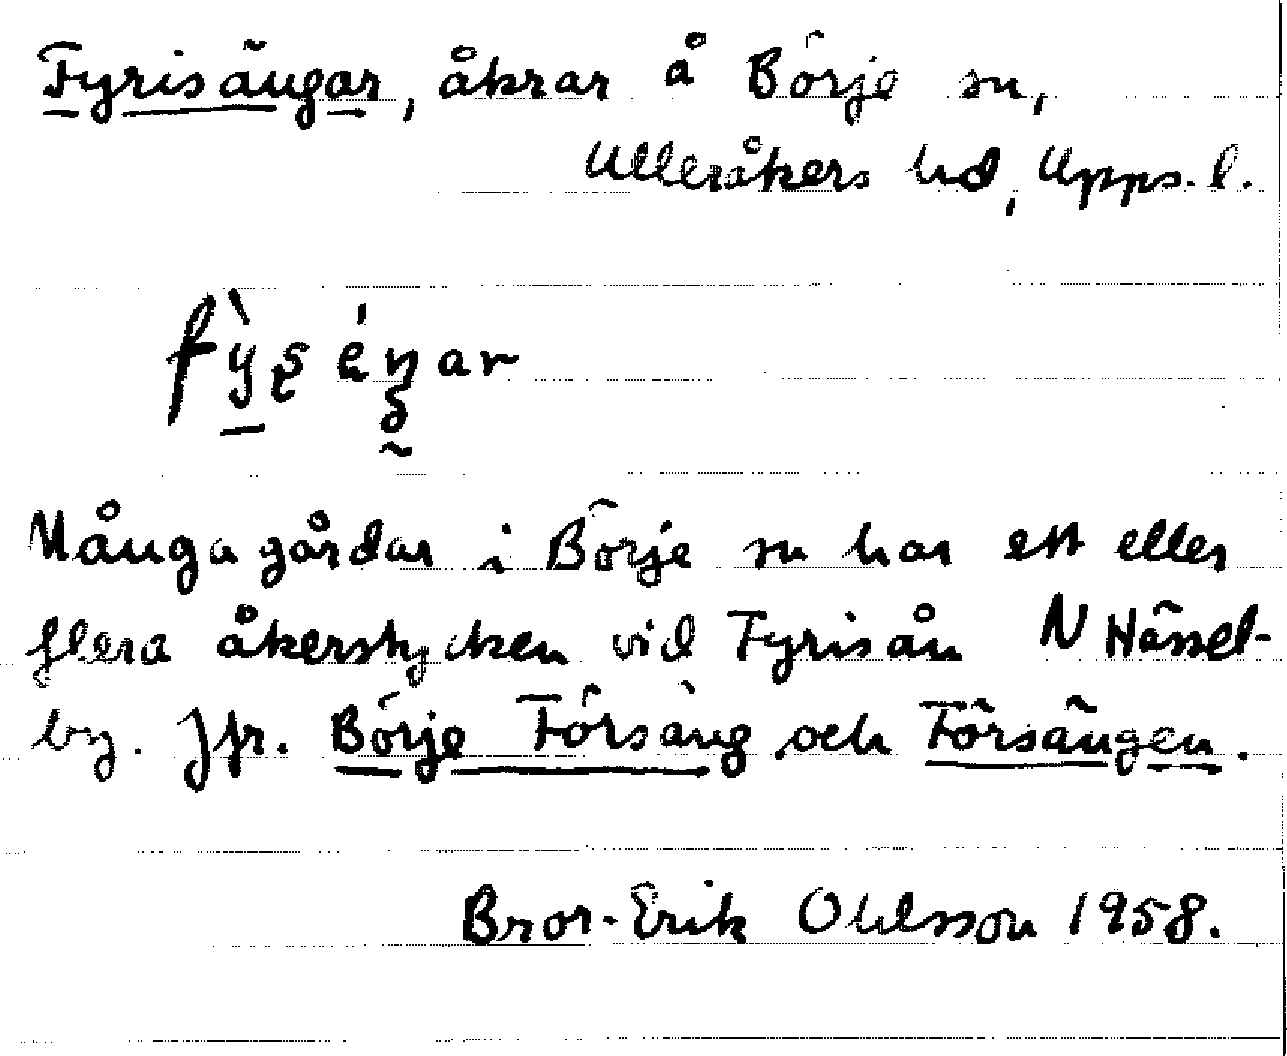 Fyrisängar, åkrar å Börje sn,
Ulleråkers hd, Upps. l.
Många gårdar i Börje sn har ett eller
flera åkerstycken vid Fyrisån N Hässel-
by. Jfr. Börje Försäng och Försängen.
Bror-Erik Ohlsson 1958.